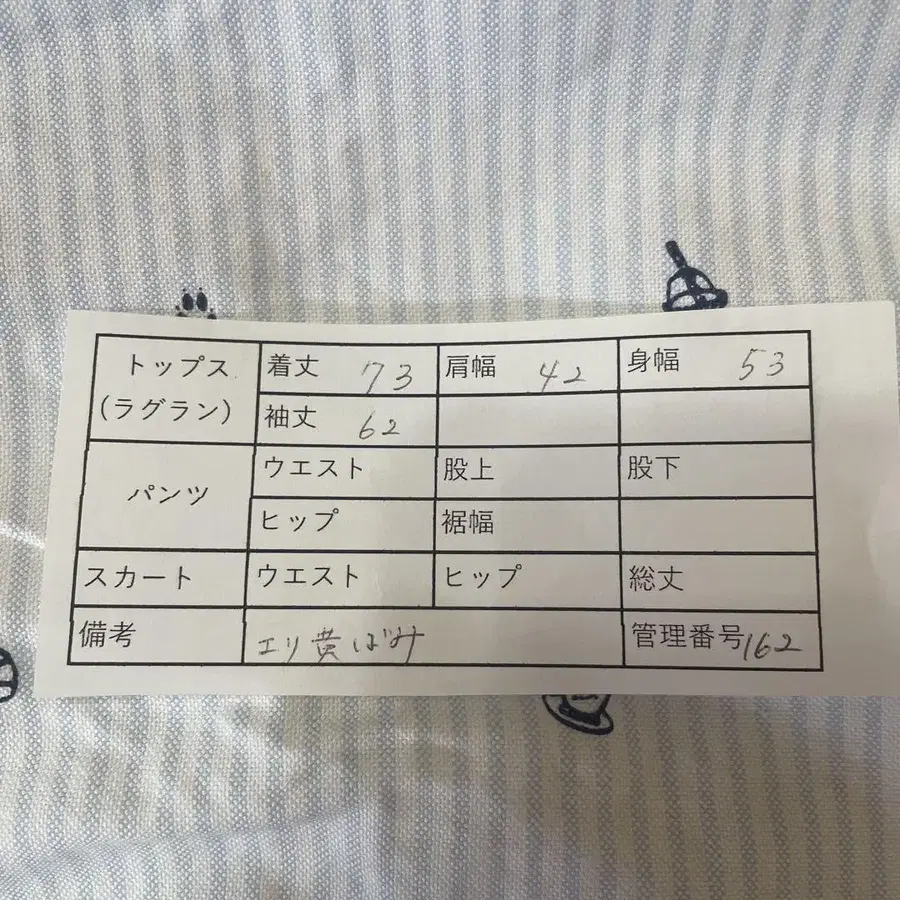 トップス 着丈 73 肩幅 42 身幅 53
(ラグラン) 袖丈 62
パンツ ウエスト 股上 股下
ヒップ 裾幅
スカート ウエスト ヒップ 総丈
備考 エリ黄ばみ 管理番号162